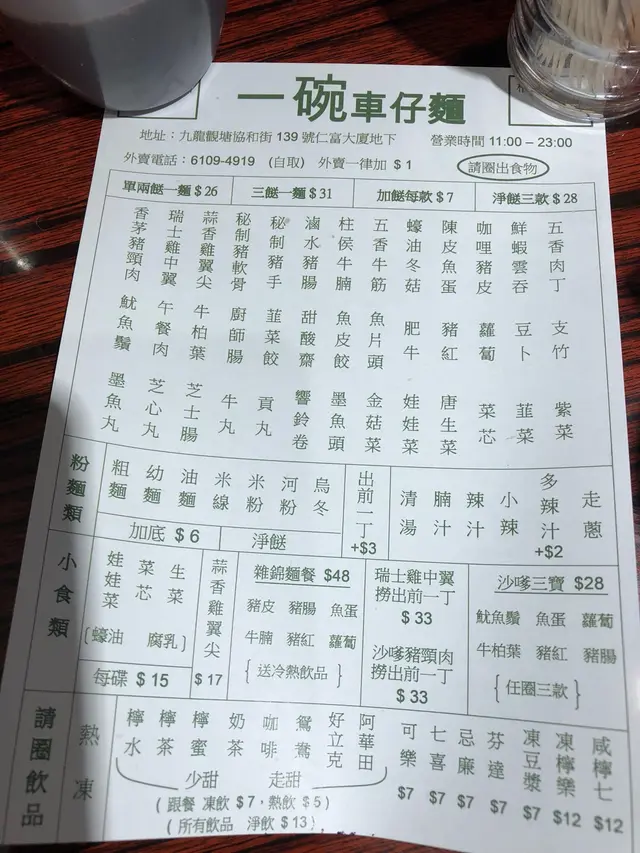 一碗車仔麵
地址：九龍觀塘協和街 139 號仁富大廈地下 營業時間 11:00 – 23:00
外賣電話：6109-4919 (自取) 外賣一律加 $ 1 請圈出食物
單兩餸一麵 $ 26 三餸一麵 $ 31 加餸每款 $ 7 淨餸三款 $ 28
香茅豬頸肉 瑞士雞中翼 蒜香雞翼尖 秘制豬軟骨 秘制豬手 滷水豬腸 柱侯牛腩 五香牛筋 蠔油冬菇 陳皮魚蛋 咖哩豬皮 鮮蝦雲吞 五香肉丁
魷魚鬚 午餐肉 牛柏葉 廚師腸 韮菜餃 甜酸齋 魚皮餃 魚片頭 肥牛 豬紅 蘿蔔 豆卜 支竹
墨魚丸 芝心丸 芝士腸 牛丸 貢丸 響鈴卷 墨魚頭 金菇菜 娃娃菜 唐生菜 菜芯 韮菜 紫菜
粉麵類
粗麵 幼麵 油麵 米線 米粉 河粉 烏冬
出前一丁 +$3
清湯 腩汁 辣汁 小辣 多辣汁 +$2 走蔥
加底 $ 6 淨餸
小食類
娃娃菜 菜芯 生菜
〔蠔油 腐乳〕
每碟 $ 15
蒜香雞翼尖 $ 17
雜錦麵餐 $48
豬皮 豬腸 魚蛋
牛腩 豬紅 蘿蔔
{ 送冷熱飲品 }
瑞士雞中翼
撈出前一丁
$ 33
沙嗲豬頸肉
撈出前一丁
$ 33
沙嗲三寶 $28
魷魚鬚 魚蛋 蘿蔔
牛柏葉 豬紅 豬腸
{ 任圈三款 }
請圈飲品
熱 凍
檸水 檸茶 檸蜜 奶茶 咖啡 鴛鴦 好立克 阿華田
少甜 走甜
( 跟餐 凍飲 $ 7，熱飲 $ 5 )
( 所有飲品 淨飲 $ 13 )
可樂 $7 七喜 $7 忌廉 $7 芬達 $7 凍豆漿 $7 凍檸樂 $12 咸檸七 $12